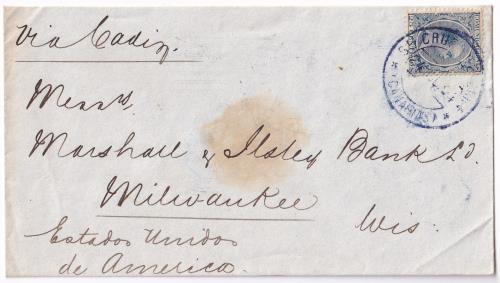 Via Cadiz.
Messrs.
Marshall & Ilsley Bank
Milwaukee
Wis.
Estados Unidos
de America.
(CANARIAS)